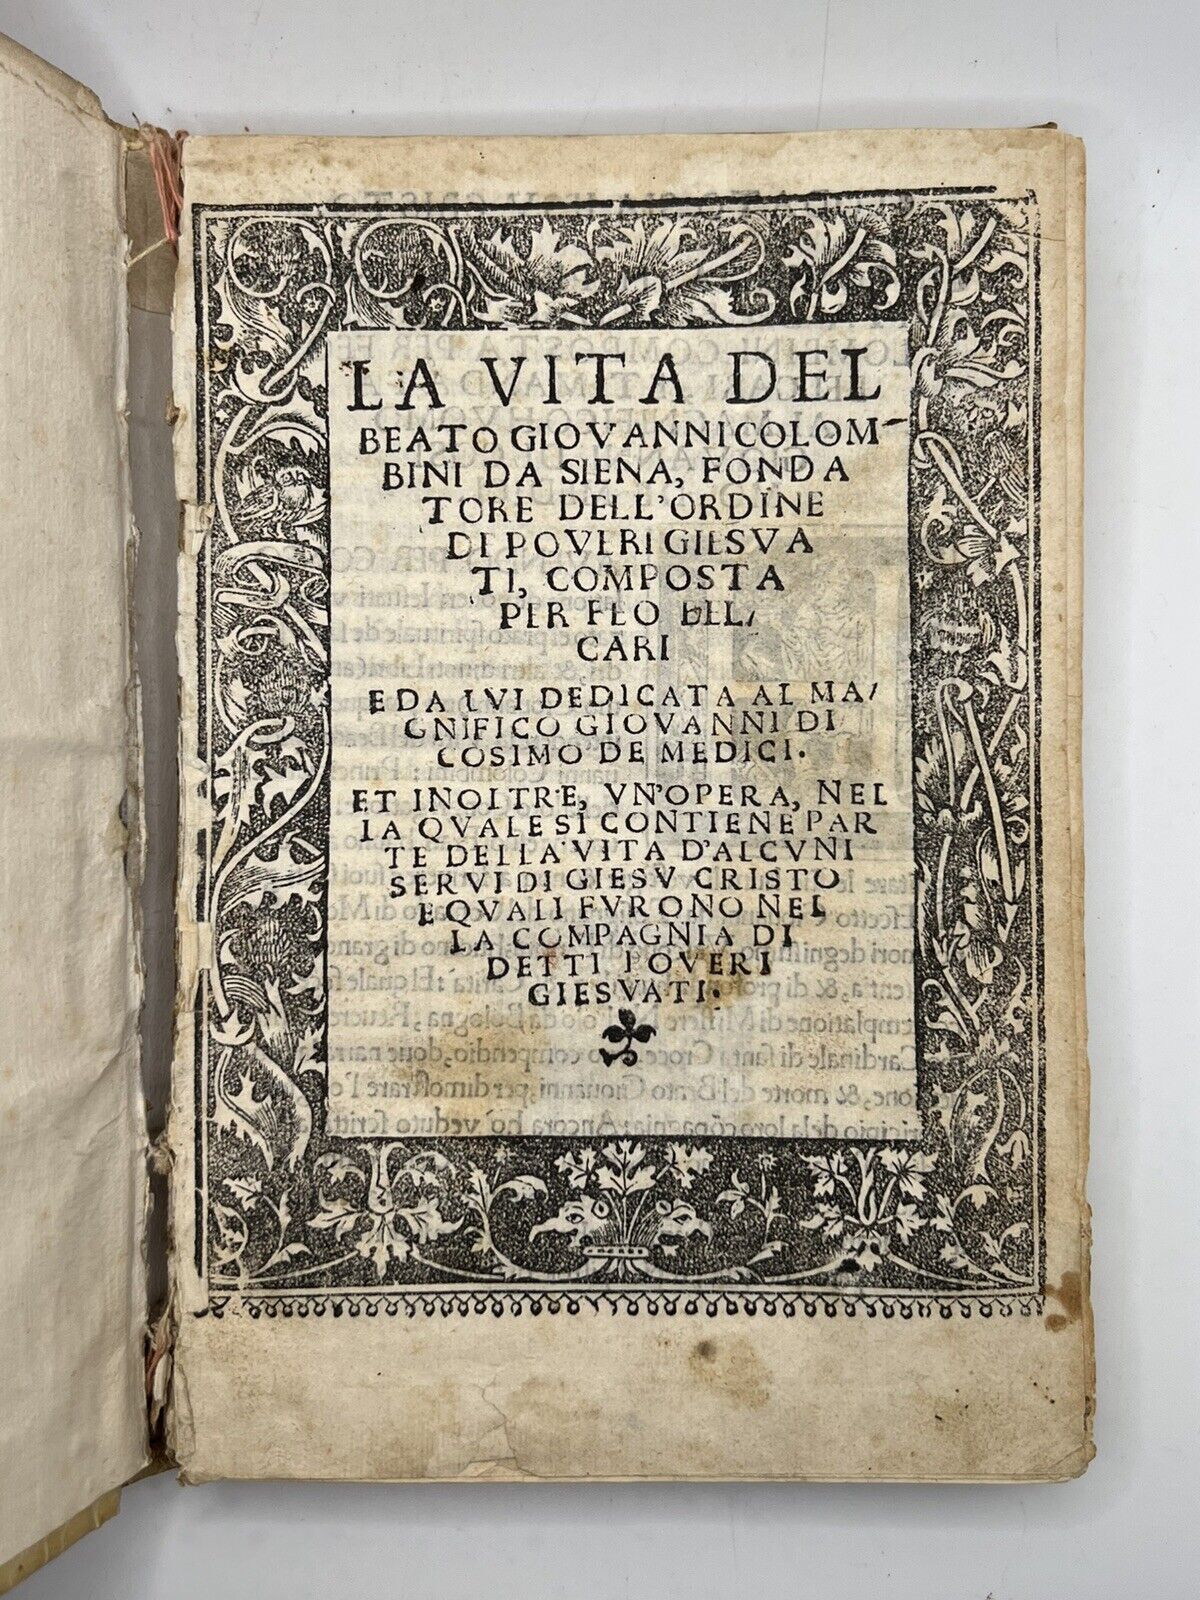 LA VITA DEL
BEATO GIOVANNI COLOM-
BINI DA SIENA, FONDA
TORE DELL'ORDINE
DI POVERI GIESVA
TI, COMPOSTA
PER FEO BEL/
CARI
E DA LVI DEDICATA AL MA/
GNIFICO GIOVANNI DI
COSIMO DE MEDICI.
ET INOLTRE, VN'OPERA, NEL
LA QVALE SI CONTIENE PAR
TE DELLA VITA D'ALCVNI
SERVI DI GIESV CRISTO
E QVALI FVRONO NEL
LA COMPAGNIA DI
DETTI POVERI
GIESVATI.